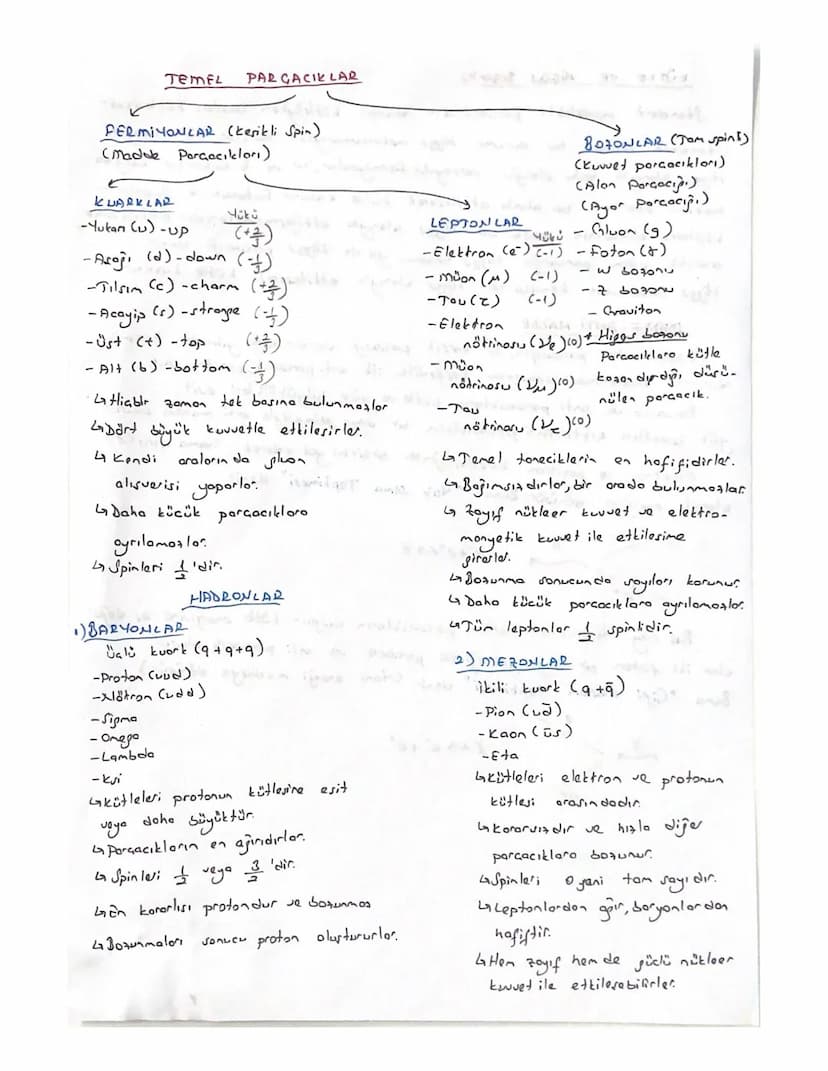 TEMEL PARÇACIKLAR
FERMİYONLAR (Kesikli Spin)
(Madde Parçacıkları)
BOZONLAR (Tam spinli)
(Kuvvet parçacıkları)
(Alan Parçacığı)
(Ayar Parçacığı)
- Gluon (g)
- Foton (γ)
- W bozonu
- Z bozonu
- Graviton
* Higgs bozonu
Parçacıklara kütle
kazandırdığı düşü-
nülen parçacık.
KUARKLAR
Yükü
-Yukarı (u) -UP (+2/3)
- Aşağı (d) -down (-1/3)
-Tılsım (c) -charm (+2/3)
- Acayip (s) -strange (-1/3)
-Üst (t) -top (+2/3)
- Alt (b) -bottom (-1/3)
↳Hiçbir zaman tek başına bulunmazlar
↳Dört büyük kuvvetle etkileşirler.
↳ Kendi aralarında gluon
alışverişi yaparlar.
↳Daha küçük parçacıklara
ayrılamazlar.
↳ Spinleri 1/2 'dir.
LEPTONLAR
Yükü
-Elektron (e⁻) (-1)
- Müon (μ) (-1)
-Tau (τ) (-1)
-Elektron
nötrinosu (νe) (0)
- Müon
nötrinosu (νμ) (0)
-Tau
nötrinosu (ντ) (0)
↳Temel taneciklerin en hafifidirler.
↳Bağımsızdırlar, bir arada bulunmazlar.
↳ Zayıf nükleer kuvvet ve elektro-
manyetik kuvvet ile etkileşime
girerler.
↳Bozunma sonucunda sayıları korunur.
↳ Daha küçük parçacıklara ayrılamazlar.
↳Tüm leptonlar 1/2 spinlidir.
HADRONLAR
1) BARYONLAR
Üçlü kuark (q+q+q)
-Proton (uud)
-Nötron (udd)
-Sigma
-Omega
-Lambda
-Ksi
↳Kütleleri protonun kütlesine eşit
veya daha büyüktür.
↳Parçacıkların en ağırıdırlar.
↳ Spinleri 1/2 veya 3/2 'dir.
↳En kararlısı protondur ve bozunmaz
↳Bozunmaları sonucu proton oluştururlar.
2) MEZONLAR
İkili kuark (q+q̄)
-Pion (ud̄)
-Kaon (ūs)
-Eta
↳Kütleleri elektron ve protonun
kütlesi arasındadır.
↳Kararsızdır ve hızla diğer
parçacıklara bozunur.
↳Spinleri 0 yani tam sayıdır.
↳Leptonlardan ağır, baryonlardan
hafiftir.
↳Hem zayıf hem de güçlü nükleer
kuvvet ile etkileşebilirler.